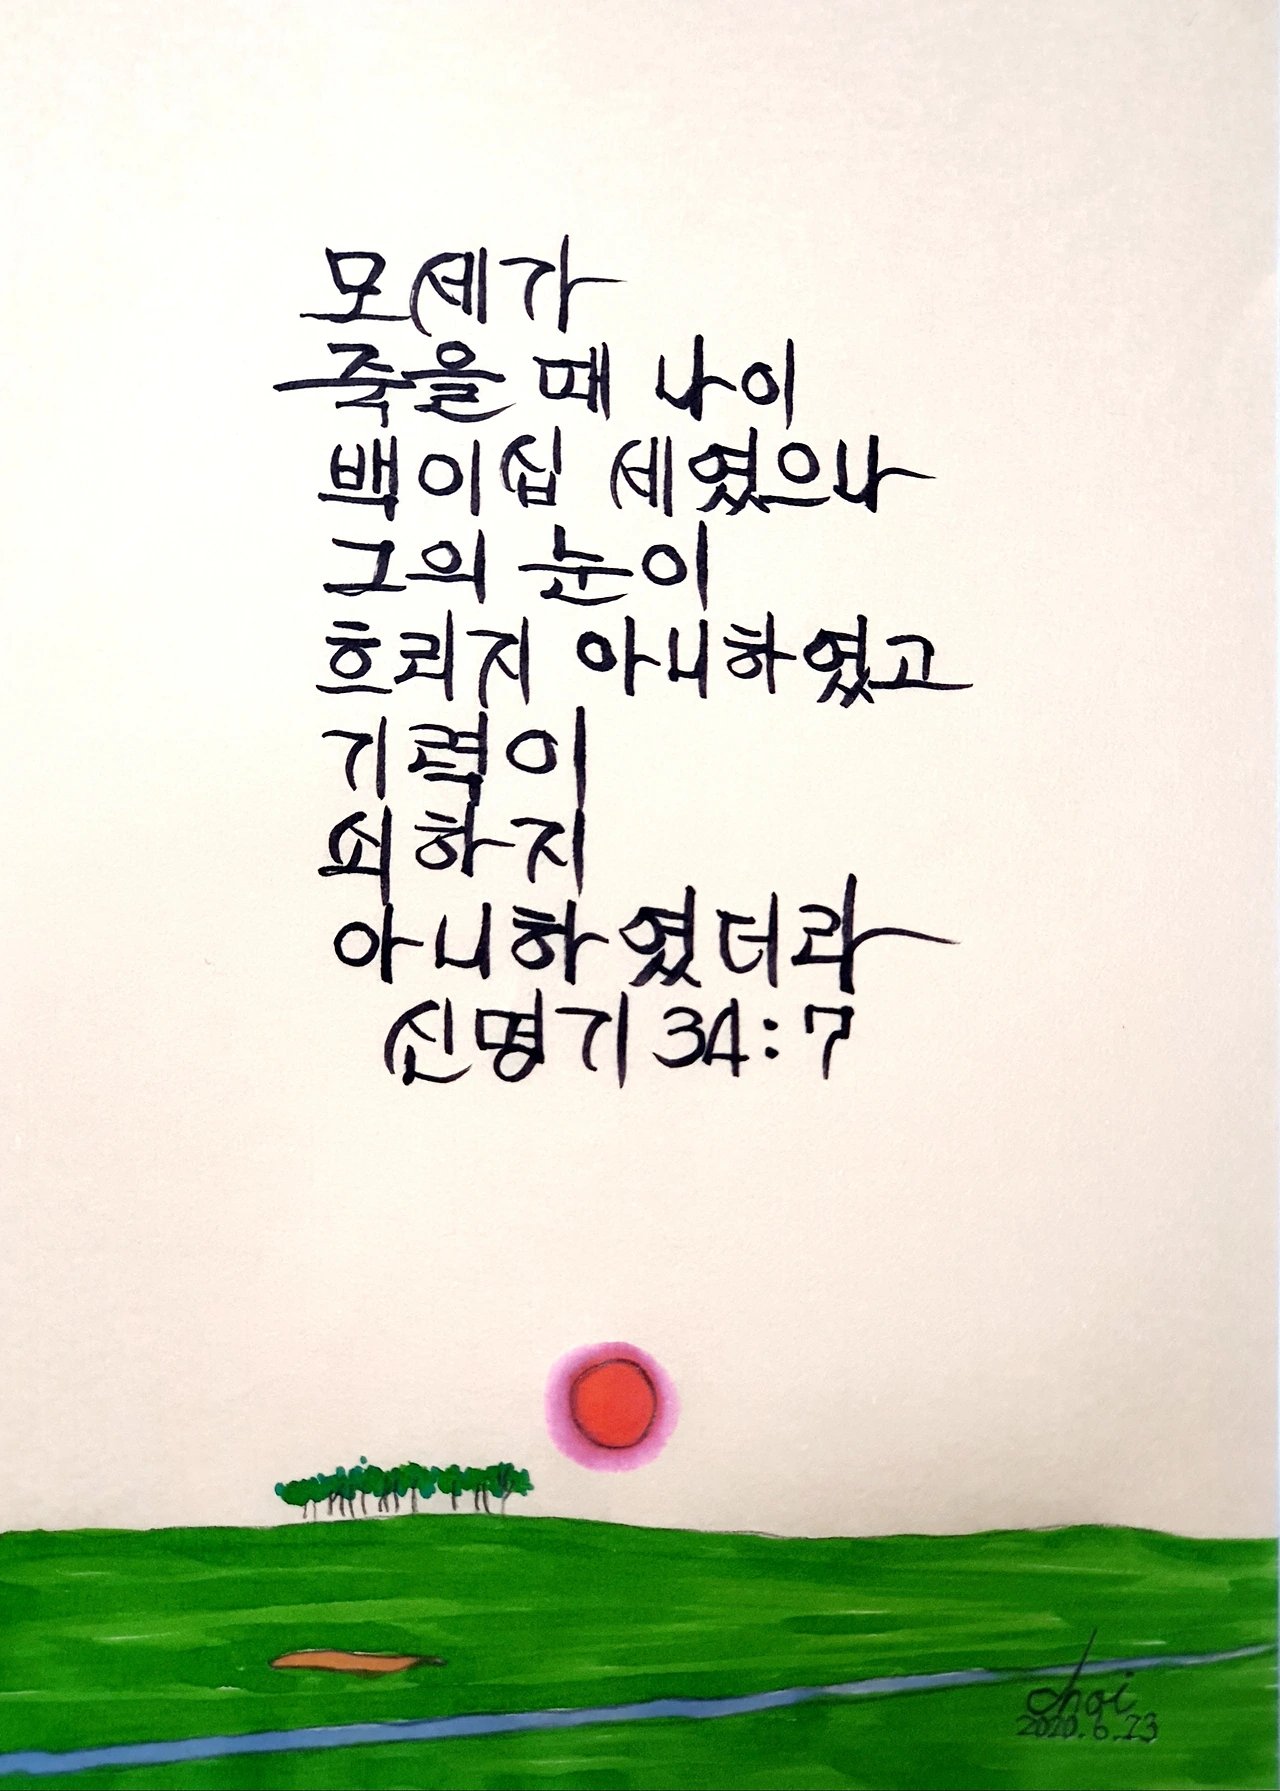 모세가
죽을 때 나이
백이십 세였으나
그의 눈이
흐리지 아니하였고
기력이
쇠하지
아니하였더라
신명기 34:7
choi
2020.6.23